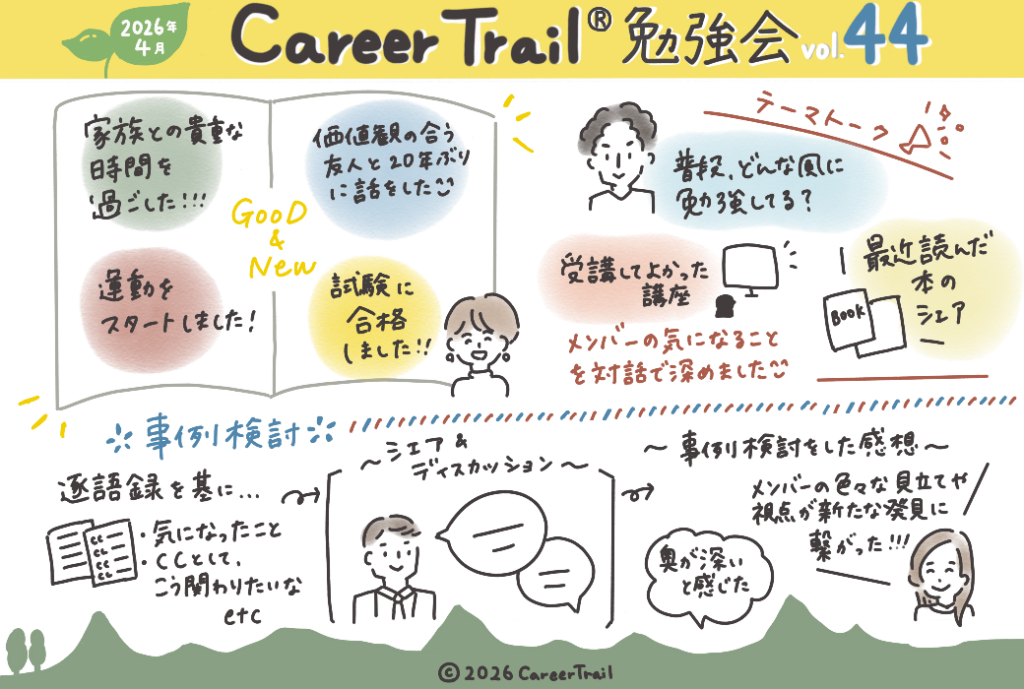 2026年
4月
Career Trail® 勉強会 vol.44
家族との貴重な
時間を
過ごした!!!
価値観の合う
友人と20年ぶり
に話をした
GooD
&
New
運動を
スタートしました!
試験に
合格
しました!!
テーマトーク
普段、どんな風に
勉強してる?
受講してよかった
講座
最近読んだ
本の
シェア
BOOK
メンバーの気になること
を対話で深めました
事例検討
逐語録を基に...
CC
CL
CC
CL
・気になったこと
・CCとして、
こう関わりたいな
etc
～シェア&
ディスカッション～
～事例検討をした感想～
メンバーの色々な見立てや
視点が新たな発見に
繋がった!!!
奥が深い
と感じた
© 2026 CareerTrail